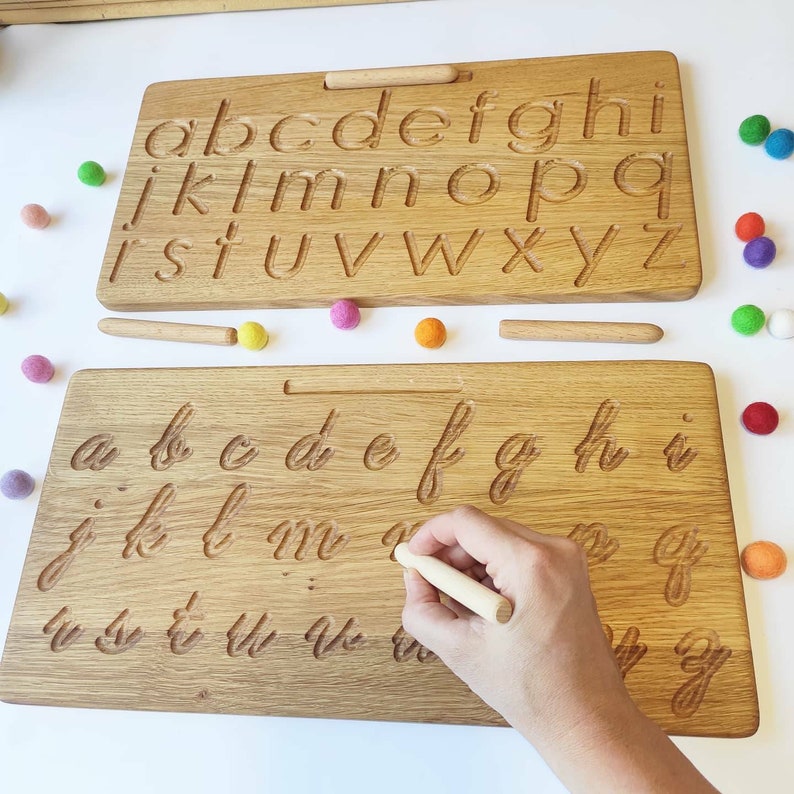 abcdefghi
jklmnopq
rstuvwxyz
abcdefghi
jklmn pq
rstuvw yz